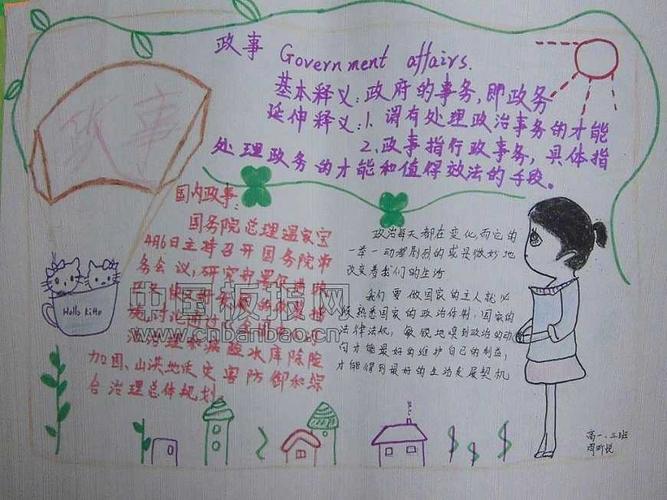 政事 Government affairs.
政事
基本释义:政府的事务,即政务
延伸释义:1.谓有处理政治事务的才能
2.政事指行政事务,具体指
处理政务的才能和值得效法的手段。
国内政事:
国务院总理温家宝
4月6日主持召开国务院常
务会议,研究部署促进
规划
水库除险
加固、山洪地质灾害防御和综
合治理总体规划。
政治每天都在变化,而它的
一举一动潜剧烈的或是微妙地
改变着我们的生活
我们要做国家的主人就必
须熟悉国家的政治体制,国家的
法律法规,敏锐地嗅到政治的动
向才能最好的维护自己的利益,
才能得到最好的主动发展契机
Hello kitto
中国板报网
www.cnbanbao.cn
高一.三班